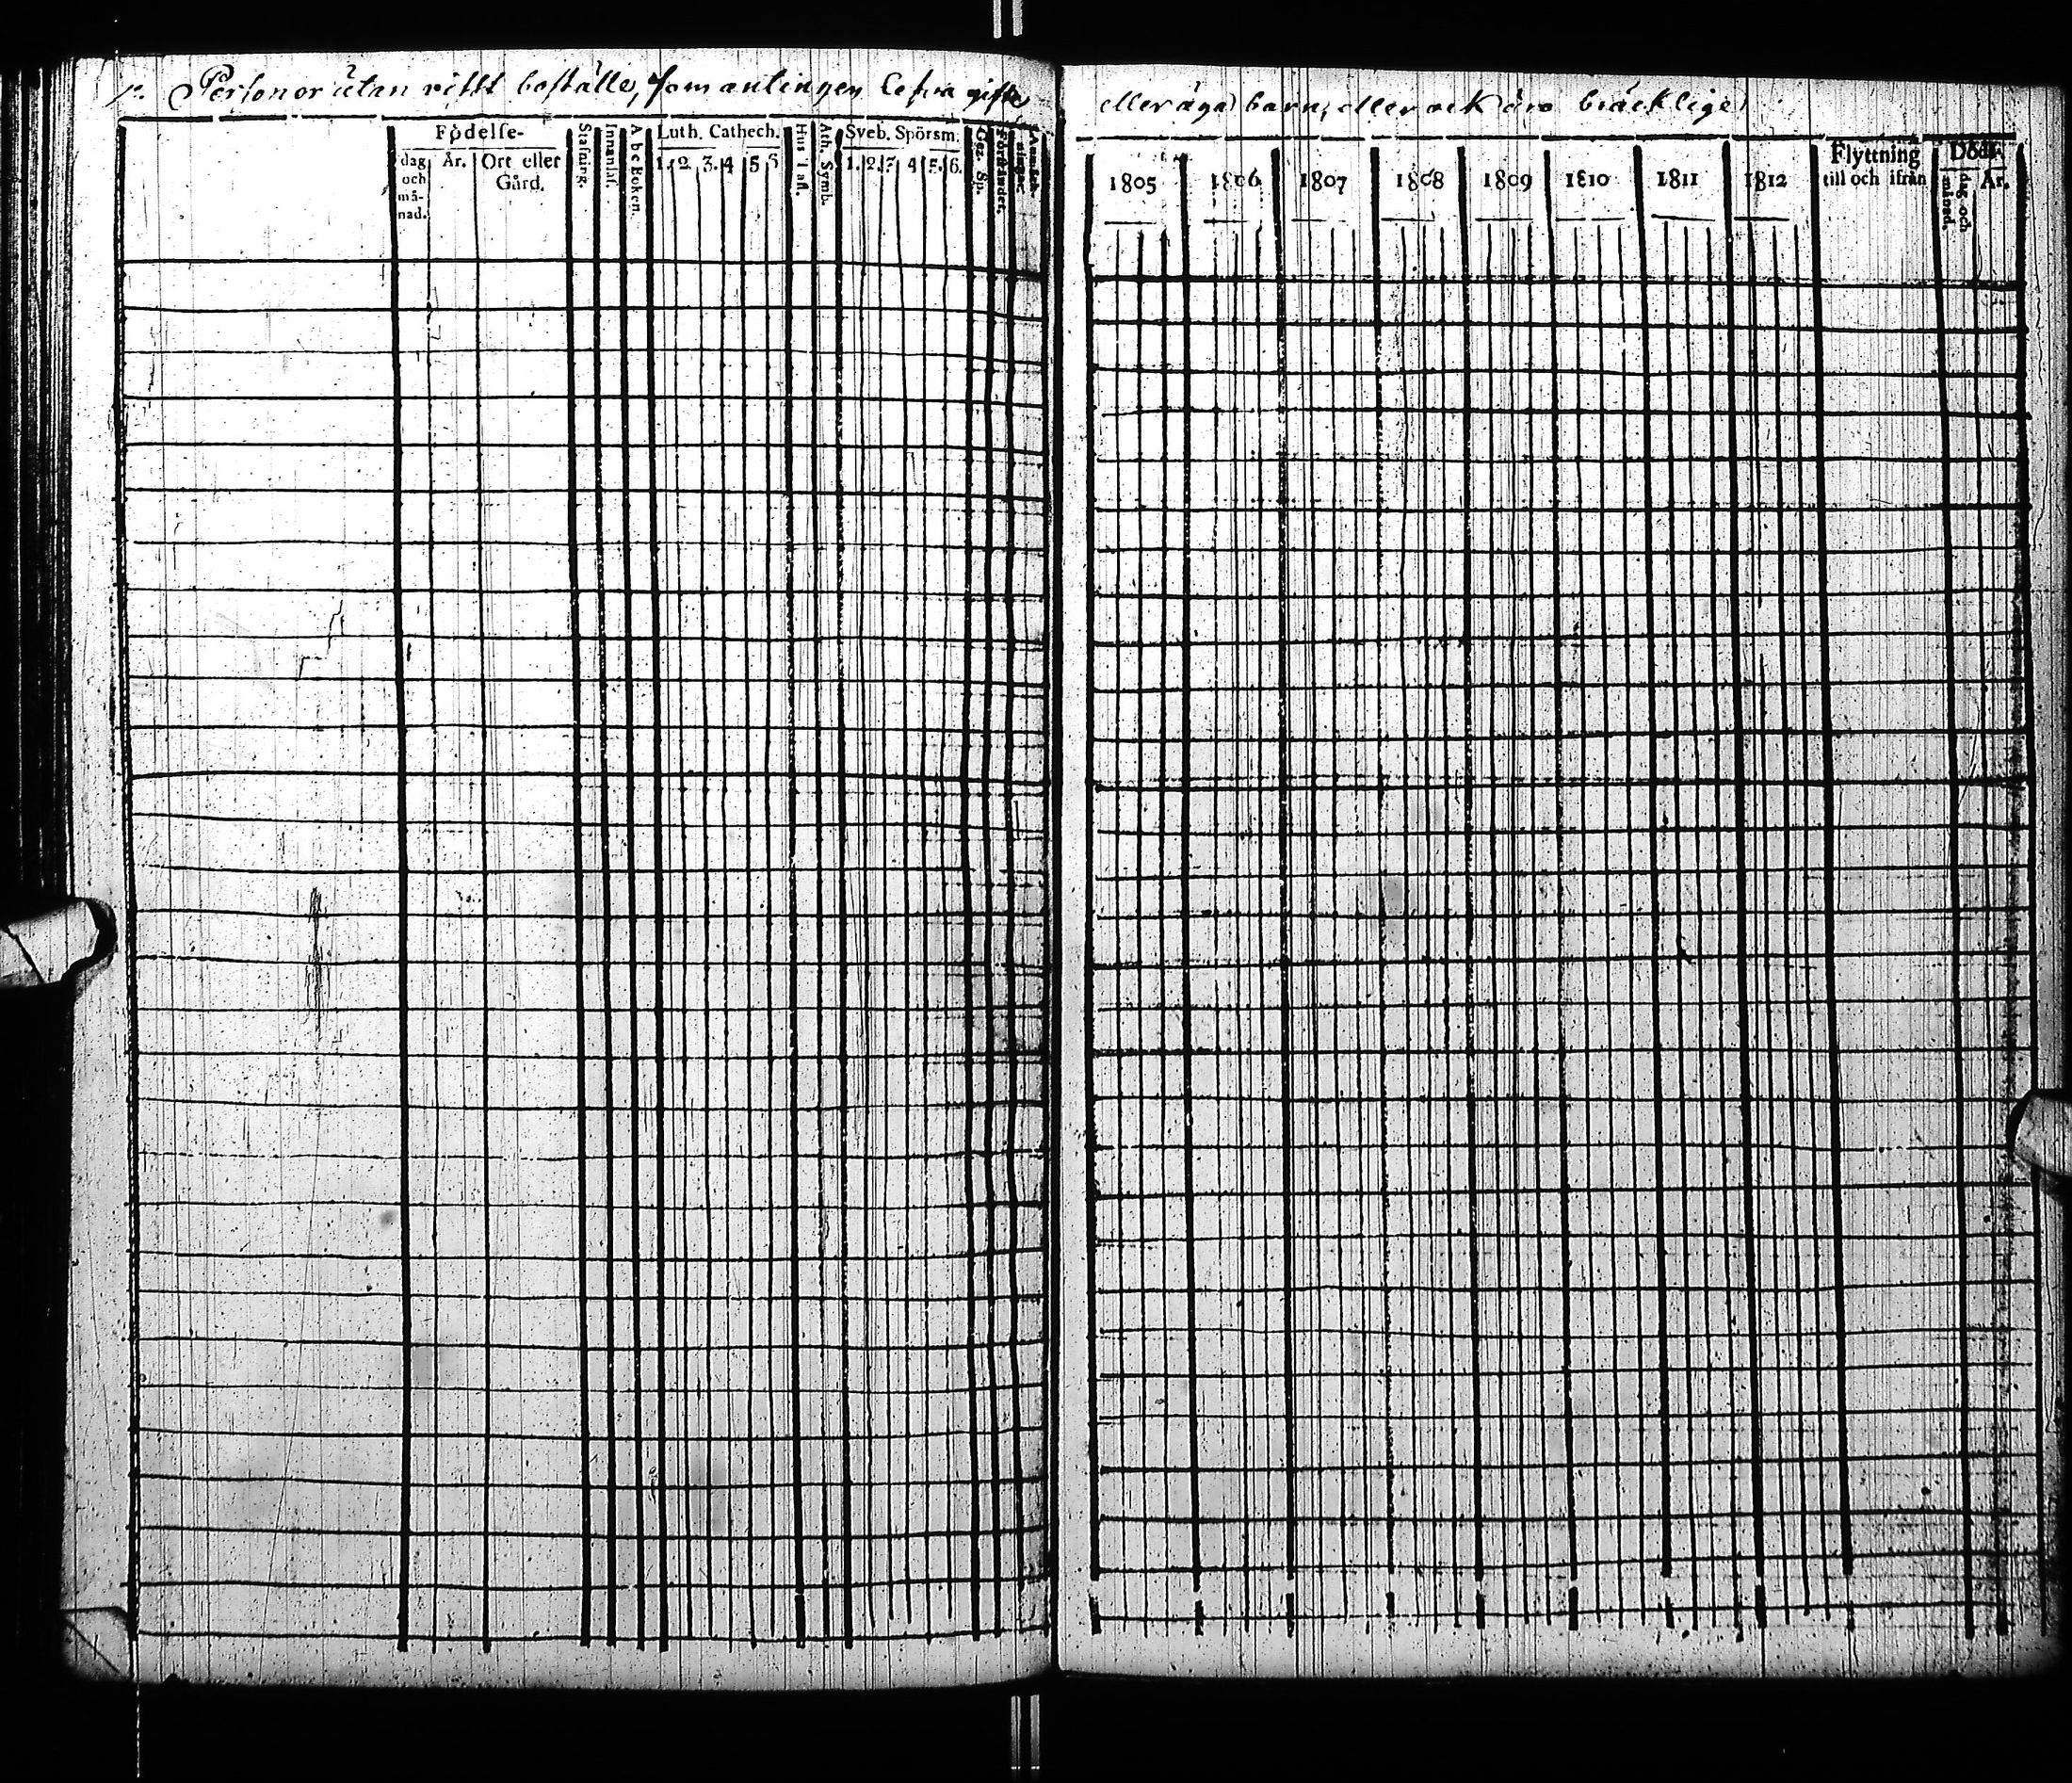 Personer utan visst beställe, som antingen lefva gifte
eller äga barn, eller ock äro bräcklige
Födelse-
dag och må-nad.
År.
Ort eller Gård.
Stafning.
Innanläs.
A b c Boken.
Luth. Cathech.
1. 2 3. 4 5 5
Hus Tafl.
Ath. Symb.
Sveb. Spörsm.
1. 2. 3 4 5. 6.
Förståndet.
1805 1806 1807 1808 1809 1810 1811 1812
Flyttning
till och ifrån
Död.
dag och månad.
År.